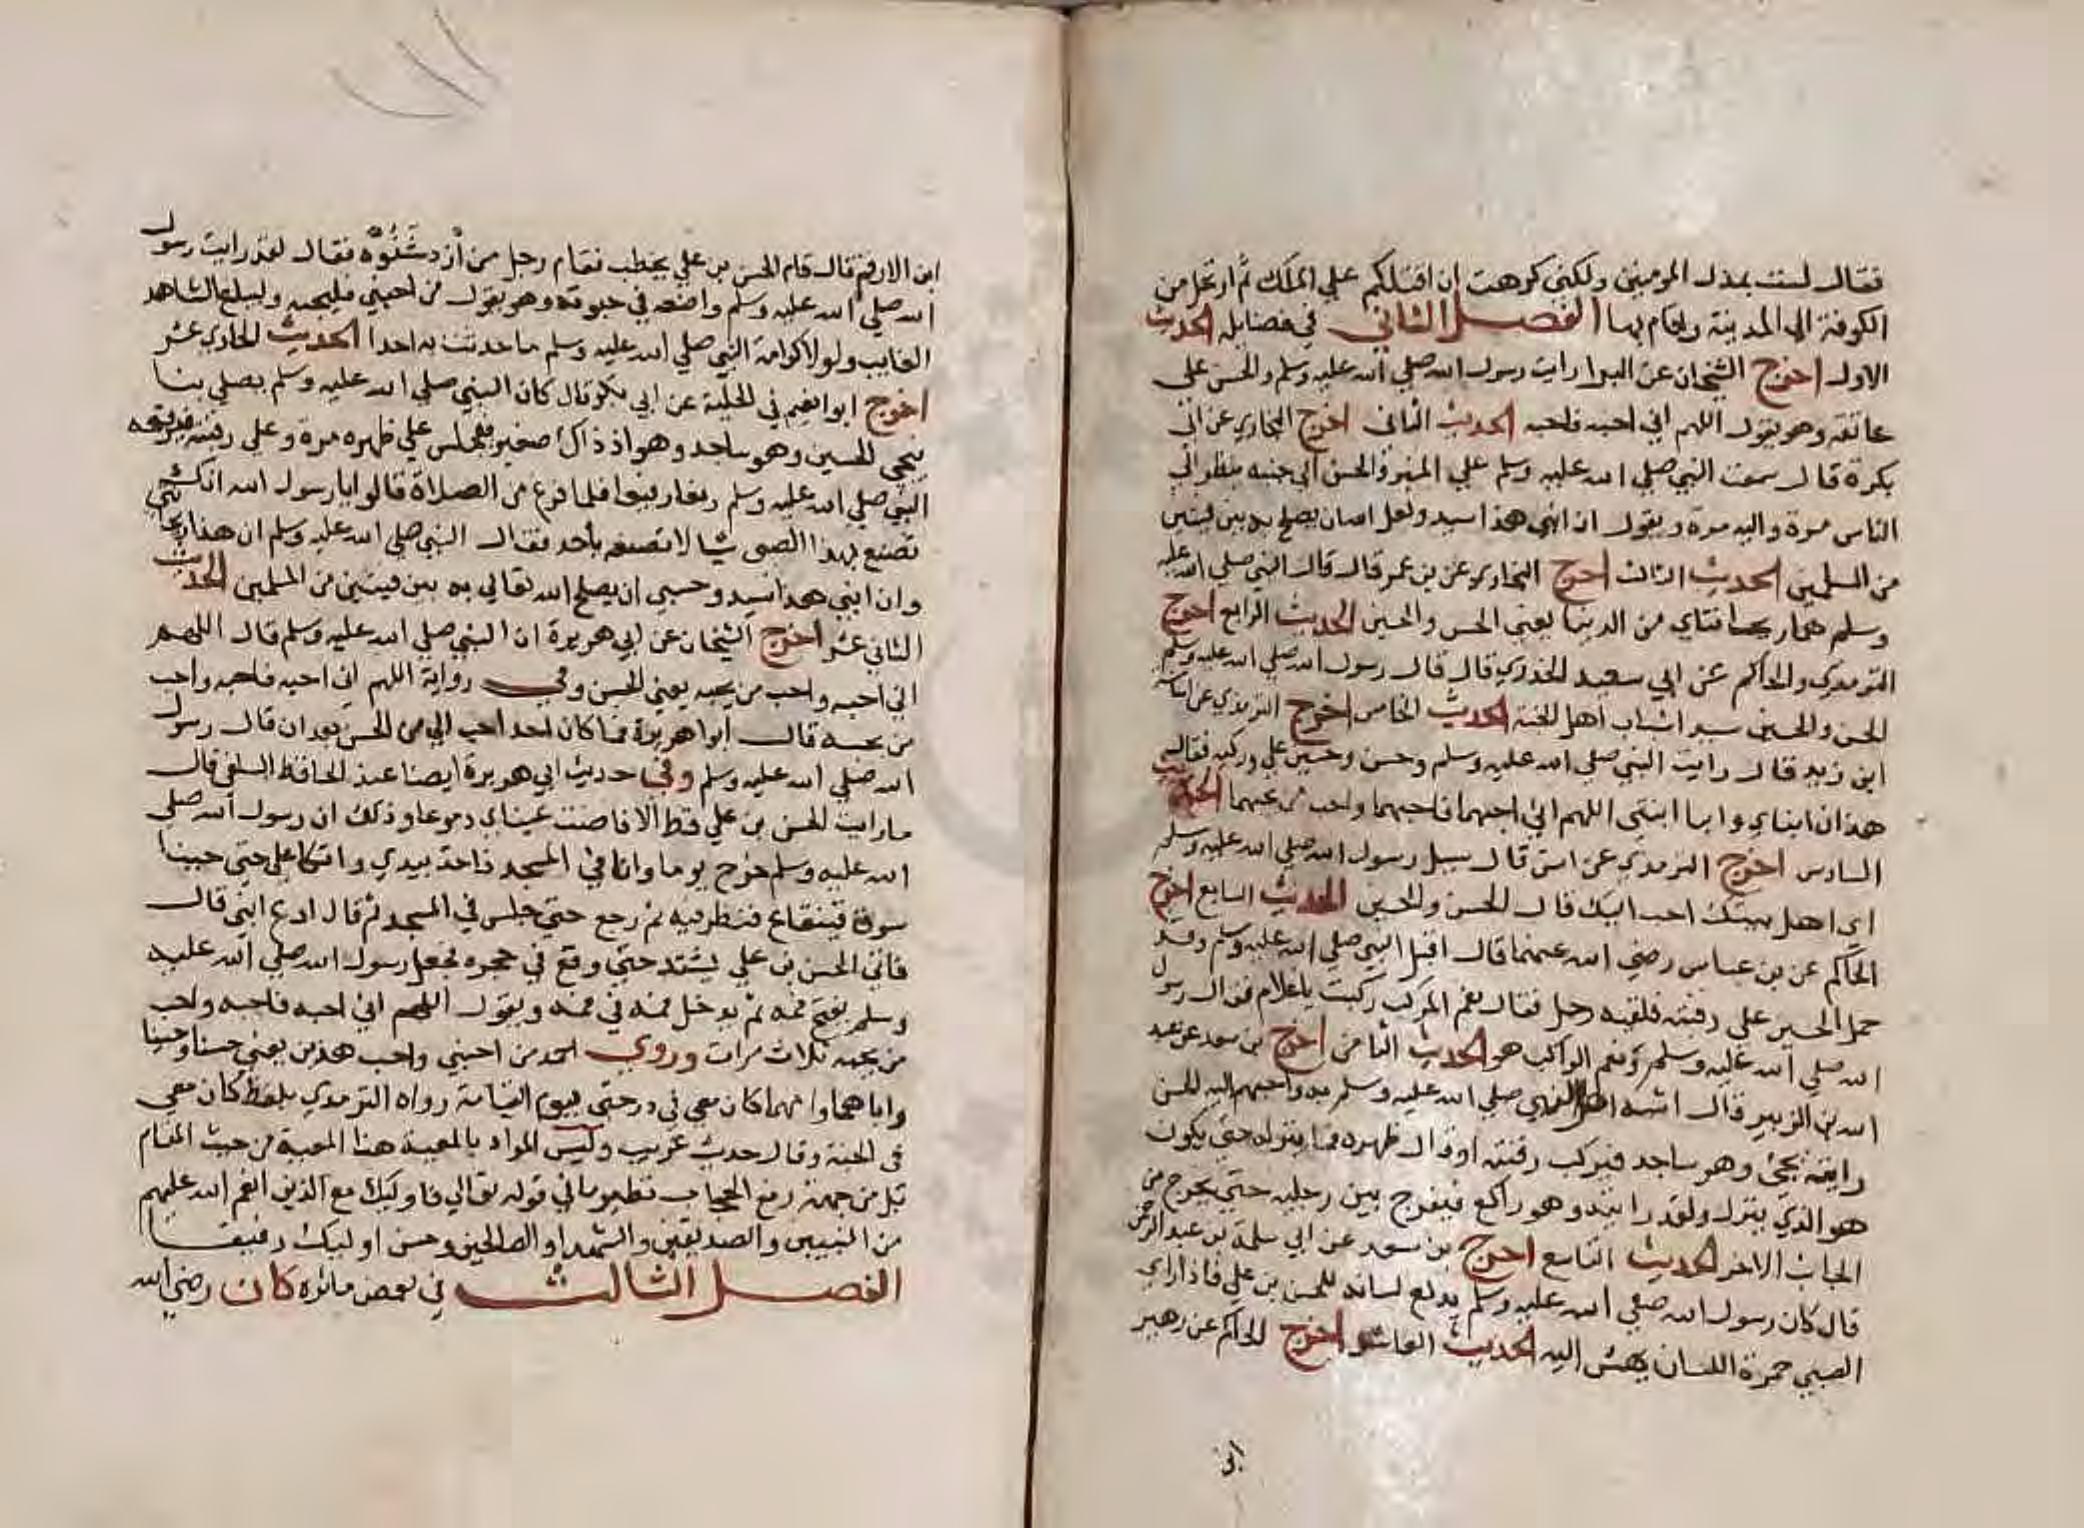 فقال لست بمذل المومنين ولكني كرهت ان اقتلكم على الملك ثم ارتحل من
الكوفة الى المدينة واقام بها الفصل الثاني في فضايله الحديث
الاول اخرج الشيخان عن البرا رايت رسول الله صلي الله عليه وسلم والحسن على
عاتقه وهو يقول اللهم اني احبه فاحبه الحديث الثاني اخرج البخاري عن ابي
بكرة قال سمعت النبي صلي الله عليه وسلم علي المنبر والحسن الى جنبه ينظر الي
الناس مرة واليه مرة ويقول ان ابني هذا سيد ولعل الله ان يصلح به بين فيتين
من المسلمين الحديث الثالث اخرج البخاري عن بن عمر قال قال النبي صلي الله عليه
وسلم هما ريحانتاي من الدنيا يعني الحسن والحسين الحديث الرابع اخرج
الترمذي والحاكم عن ابي سعيد الخدري قال قال رسول الله صلي الله عليه وسلم
الحسن والحسين سيدا شباب اهل الجنة الحديث الخامس اخرج الترمذي عن اسامة
ابن زيد قال رايت النبي صلي الله عليه وسلم وحسن وحسين علي وركيه فقال
هذان ابناي وابنا ابنتي اللهم اني احبهما فاحبهما واحب من يحبهما الحديث
السادس اخرج الترمذي عن انس قال سيل رسول الله صلي الله عليه وسلم
اي اهل بيتك احب اليك قال الحسن والحسين الحديث السابع اخرج
الحاكم عن بن عباس رضي الله عنهما قال اقبل النبي صلي الله عليه وسلم وقد
حمل الحسين على رقبته فلقيه رجل فقال نعم المركب ركبت يا غلام فقال رسول
الله صلي الله عليه وسلم ونعم الراكب هو الحديث الثامن اخرج بن سعد عن عبد
الله بن الزبير قال اشبه اهل النبي صلي الله عليه وسلم به واحبهم اليه الحسن
رايته يجئ وهو ساجد فيركب رقبته او قال ظهره فما ينزله حتى يكون
هو الذي ينزل ولقد رايته وهو راكع فيفرج بين رجليه حتي يخرج من
الجانب الاخر الحديث التاسع اخرج بن سعد عن ابي سلمة بن عبد الرحمن
قال كان رسول الله صلي الله عليه وسلم يدلع لسانه للحسن بن علي فاذا راي
الصبي حمرة اللسان يهش اليه الحديث العاشر اخرج الحاكم عن زهير
ابن
ابن الارقم قال قام الحسن بن علي يخطب فقام رجل من أزد شنوة فقال لقد رايت رسول
الله صلي الله عليه وسلم واضعه في حبوته وهو يقول من احبني فليحبه وليبلغ الشاهد
الغايب ولولا كرامة النبي صلي الله عليه وسلم ما حدثت به احدا الحديث الحادي عشر
اخرج ابو انعيم في الحلية عن ابي بكر قال كان النبي صلي الله عليه وسلم يصلي بنا
يجي الحسين وهو ساجد وهو اذ ذاك صغير فيجلس علي ظهره مرة وعلى رقبته فيرفعه
النبي صلي الله عليه وسلم رفعا رفيعا فلما فرغ من الصلاة قالوا يا رسول الله انك
تصنع بهذا الصبي شيا لا تصنعه بأحد فقال النبي صلي الله عليه وسلم ان هذا ريحانتي
وان ابني هذا سيد وحسبي ان يصلح الله تعالي به بين فيتين من المسلمين الحديث
الثاني عشر اخرج الشيخان عن ابي هريرة ان النبي صلي الله عليه وسلم قال اللهم
اني احبه واحب من يحبه يعني الحسن وفي رواية اللهم اني احبه فاحبه واحب
من يحبه قال ابوا هريرة فما كان احد احب الي من الحسن بعد ان قال رسول
الله صلي الله عليه وسلم وفي حديث ابي هريرة ايضا عند الحافظ السلفي قال
ما رايت الحسن بن علي قط الا فاضت عيناي دموعا وذلك ان رسول الله صلي
الله عليه وسلم خرج يوما وانا في المسجد فاخذ بيدي واتكا علي حتى جينا
سوق قينقاع فنظر فيه ثم رجع حتي جلس في المسجد ثم قال ادع ابني قال
فاتي الحسن بن علي يشتد حتي وقع في حجره فجعل رسول الله صلي الله عليه
وسلم يفتح فمه ثم يدخل فمه في فمه ويقول اللهم اني احبه فاحبه واحب
من يحبه ثلاث مرات وروي احمد من احبني واحب هذين يعني حسنا وحسينا
واباهما وامهما كان معي في درجتي يوم القيامة رواه الترمذي بلفظ كان معي
في الجنة وقال حديث غريب وليس المراد بالمعية هنا المعية من حيث المقام
بل من جهة رفع الحجاب نظير ما في قوله تعالي فاوليك مع الذين انعم الله عليهم
من النبيين والصديقين والشهداء والصالحين وحسن اوليك رفيقا
الفصل الثالث في بعض ماثره كان رضي الله